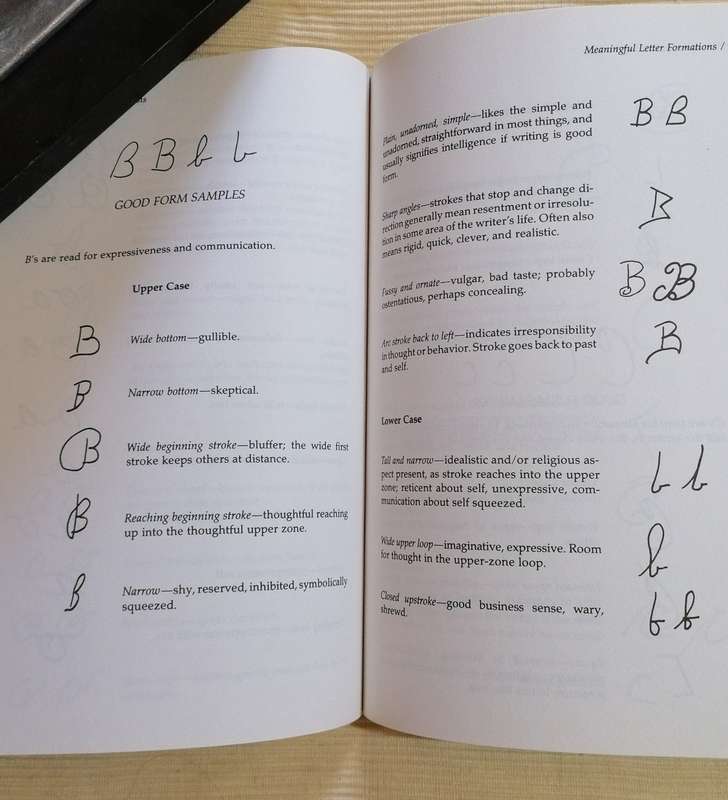 B B b b
GOOD FORM SAMPLES
B's are read for expressiveness and communication.
Upper Case
B
Wide bottom—gullible.
B
Narrow bottom—skeptical.
B
Wide beginning stroke—bluffer; the wide first
stroke keeps others at distance.
B
Reaching beginning stroke—thoughtful reaching
up into the thoughtful upper zone.
B
Narrow—shy, reserved, inhibited, symbolically
squeezed.
Meaningful Letter Formations /
Plain, unadorned, simple—likes the simple and
unadorned, straightforward in most things, and
usually signifies intelligence if writing is good
form.
B B
Sharp angles—strokes that stop and change di-
rection generally mean resentment or irresolu-
tion in some area of the writer's life. Often also
means rigid, quick, clever, and realistic.
B
Fussy and ornate—vulgar, bad taste; probably
ostentatious, perhaps concealing.
B B
Arc stroke back to left—indicates irresponsibility
in thought or behavior. Stroke goes back to past
and self.
B
Lower Case
Tall and narrow—idealistic and/or religious as-
pect present, as stroke reaches into the upper
zone; reticent about self, unexpressive, com-
munication about self squeezed.
b b
Wide upper loop—imaginative, expressive. Room
for thought in the upper-zone loop.
b
Closed upstroke—good business sense, wary,
shrewd.
b b